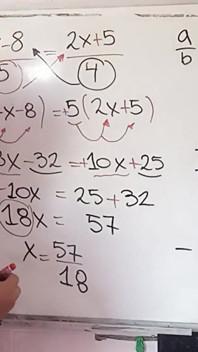 x-8 = 2x+5
5 4
-x-8) = +5(2x+5)
8x-32 = +10x+25
-10x = 25+32
18x = 57
x = 57
18
a
b